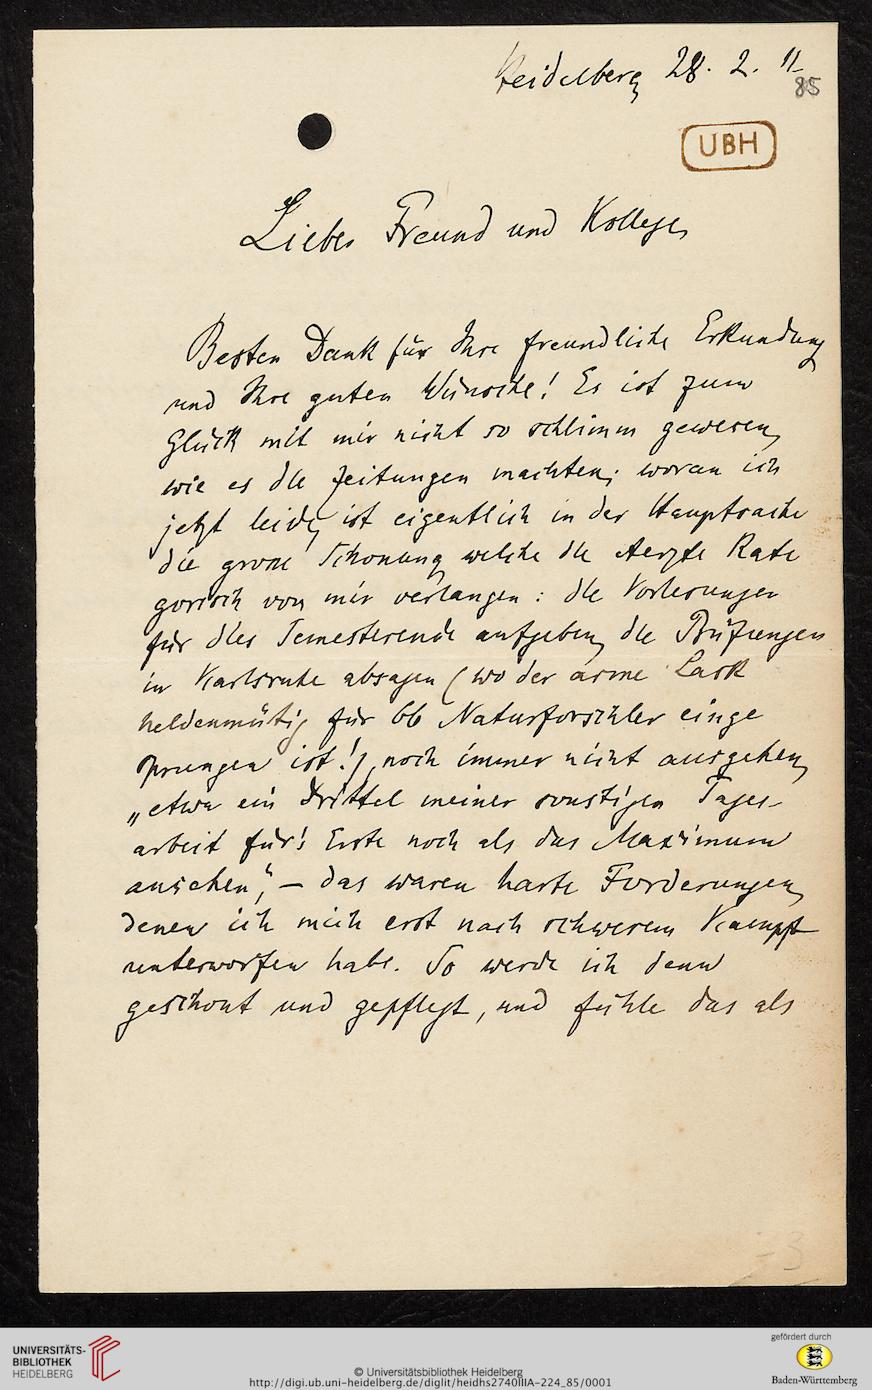 Heidelberg 28. 2. 11
85
UBH
Lieber Freund und Kollege,
Besten Dank für Ihre freundliche Erkundung
und Ihre guten Wünsche! Es ist zum
Glück mit mir nicht so schlimm gewesen,
wie es die Zeitungen machten; woran ich
jetzt leide, ist eigentlich in der Hauptsache
die grosse Schonung welche die Aerzte Kate
gorisch von mir verlangen: die Vorlesungen
für dies Semesterende aufgeben, die Prüfungen
in Karlsruhe absagen (wo der arme Lask
heldenmütig für 66 Naturforschler einge
sprungen ist!), noch immer nicht ausgehen,
„etwa ein Drittel meiner sonstigen Tages-
arbeit für's Erste noch als das Maximum
ansehen", — das waren harte Forderungen,
denen ich mich erst nach schwerem Kampf
unterworfen habe. So werde ich denn
geschont und gepflegt, und fühle das als
3
UNIVERSITÄTS-
BIBLIOTHEK
HEIDELBERG
© Universitätsbibliothek Heidelberg
http://digi.ub.uni-heidelberg.de/diglit/heidhs2740IIIA-224_85/0001
gefördert durch
Baden-Württemberg